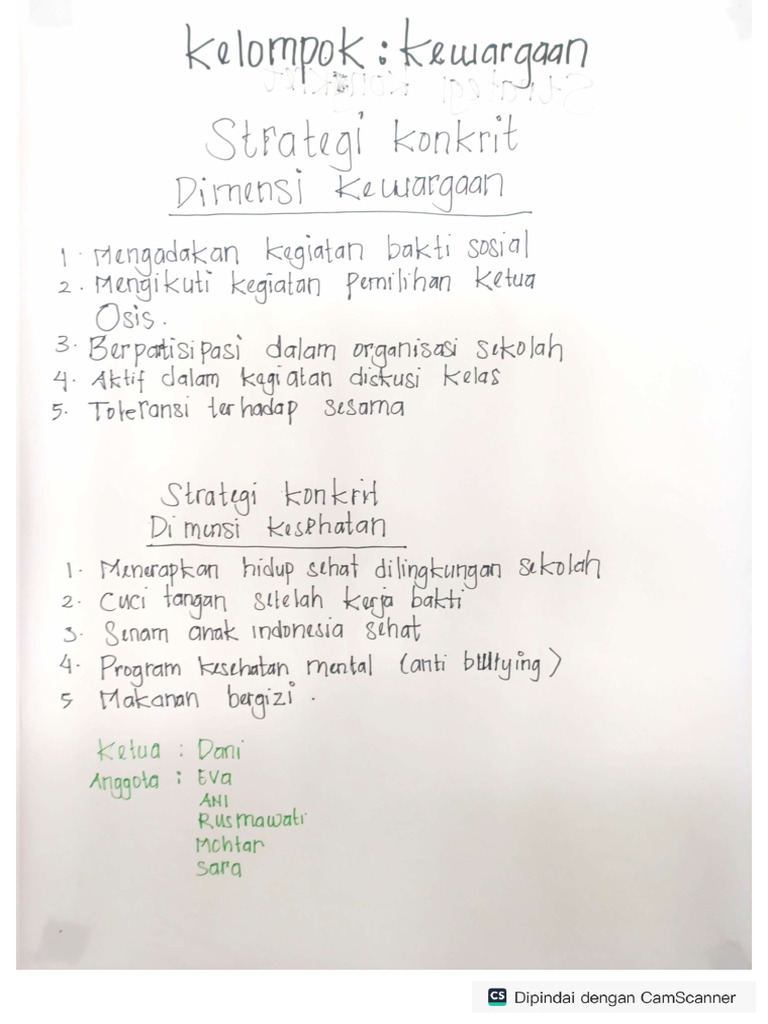 Kelompok : Kewargaan
Strategi konkrit
Dimensi Kewargaan
1. Mengadakan kegiatan bakti sosial
2. Mengikuti kegiatan Pemilihan Ketua
Osis.
3. Berpatisipasi dalam organisasi sekolah
4. Aktif dalam kegiatan diskusi kelas
5. Toleransi terhadap sesama
Strategi konkrit
Dimensi Kesehatan
1. Menerapkan hidup sehat dilingkungan sekolah
2. Cuci tangan setelah kerja bakti
3. Senam anak indonesia sehat
4. Program kesehatan mental (anti bullying)
5 Makanan bergizi .
Ketua : Dani
Anggota : Eva
ANI
Rusmawati
Mohtar
Sara
CS Dipindai dengan CamScanner